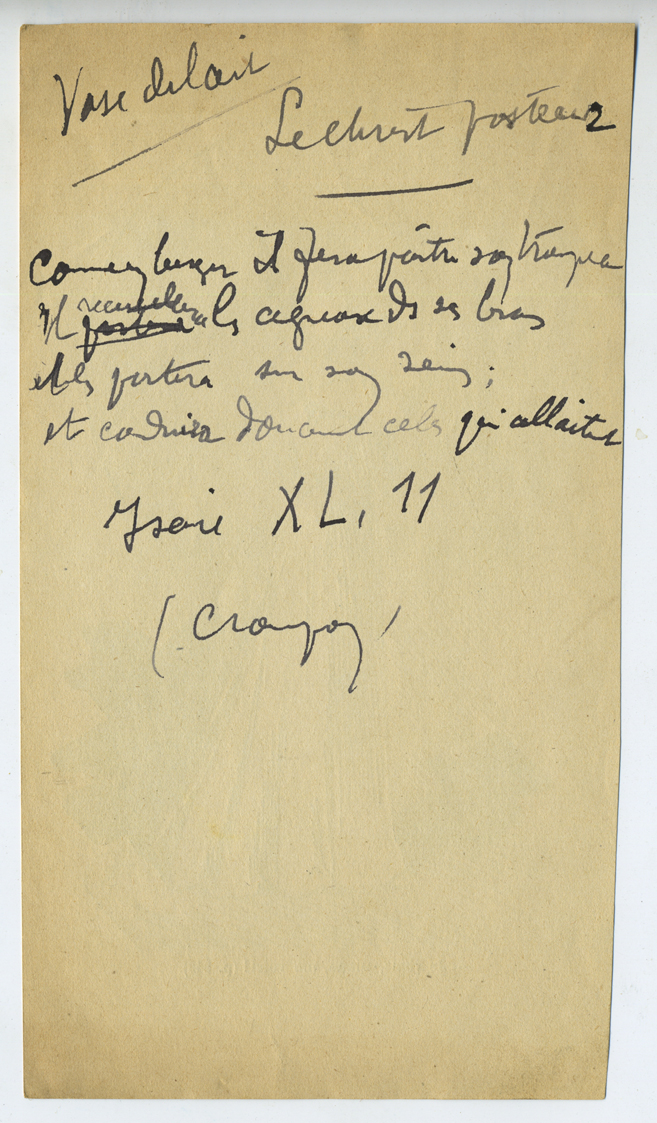 Vase de lait
Le Christ pasteur
Comme un berger il fera paître son troupeau
Il recueillera les agneaux ds ses bras
et les portera sur son sein ;
et conduira doucement celles qui allaitent
Isaïe XL, 11
(Crampon)